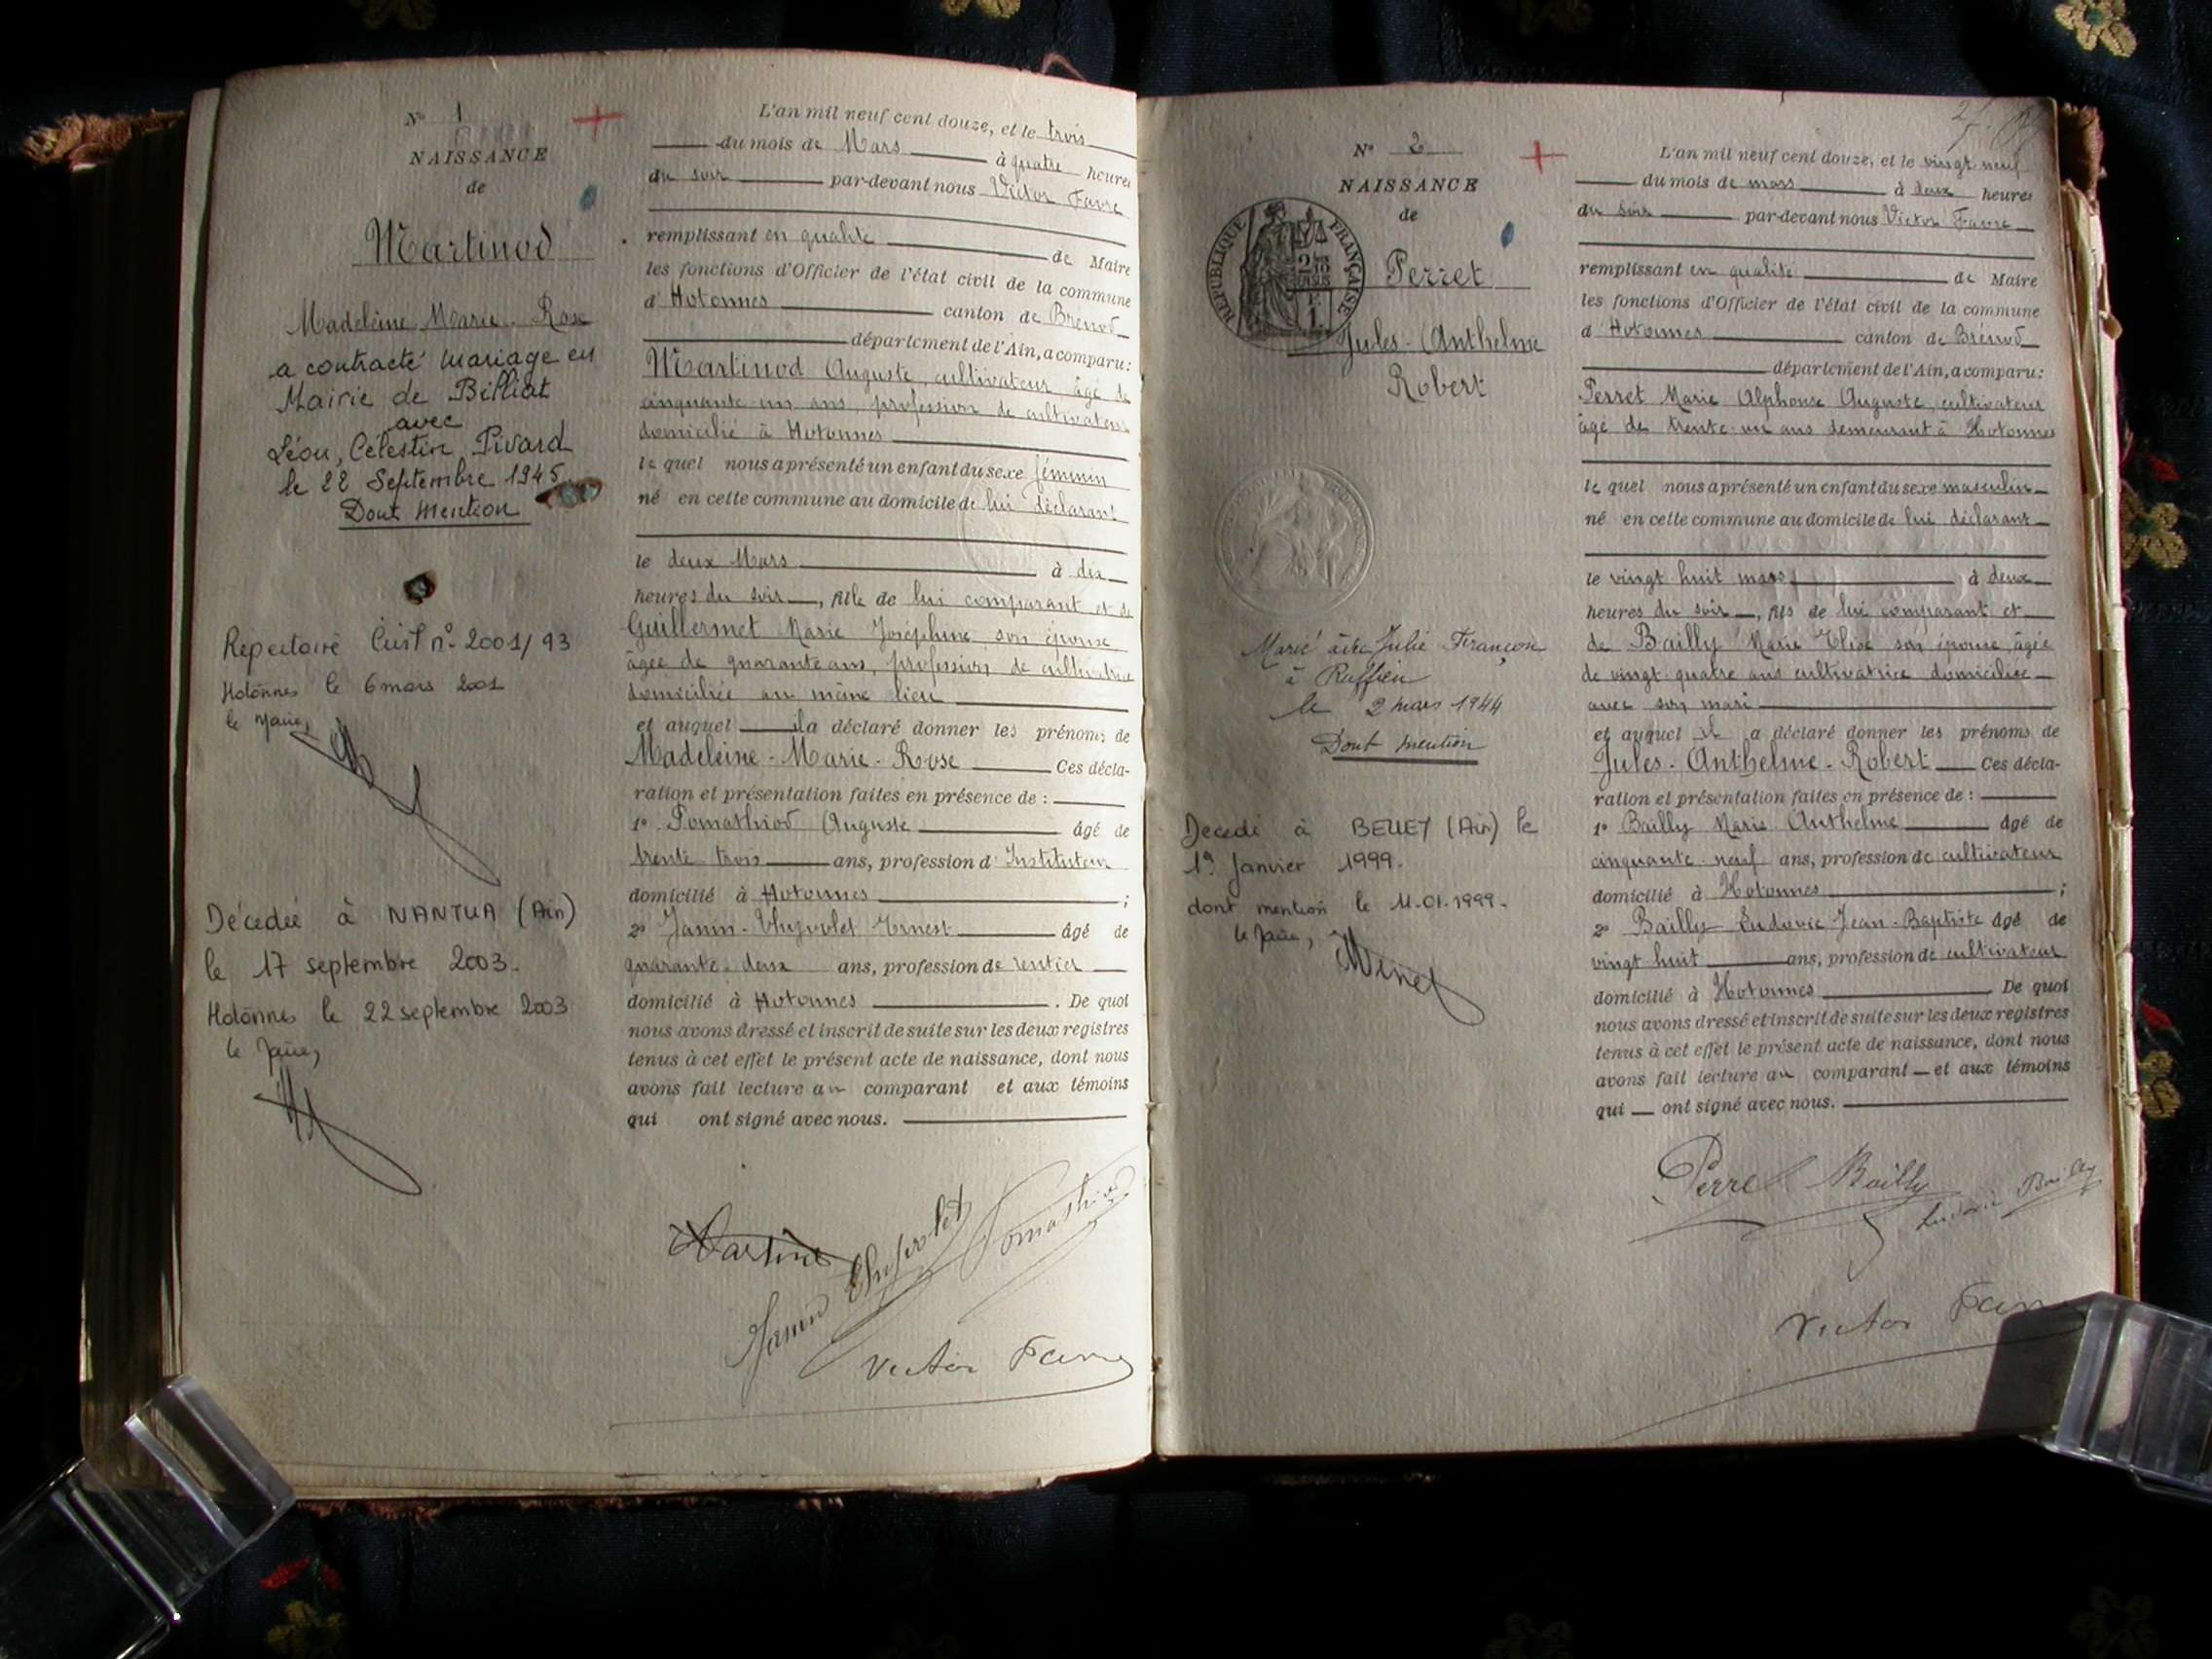 N° 1
NAISSANCE
de
Martinod
Madeleine Marie-Rose
a contracté mariage en
Mairie de Billiat
avec
Léon, Célestin Pivard
le 22 Septembre 1945
Dont Mention
Répertoire Civil n° 2001/93
Hotonnes le 6 mars 2001
le Maire,
Décédée à NANTUA (Ain)
le 17 septembre 2003.
Hotonnes le 22 septembre 2003
le Maire,
L'an mil neuf cent douze, et le trois
du mois de Mars à quatre heures
du soir par-devant nous Victor Favre
remplissant en qualité de Maire
les fonctions d'Officier de l'état civil de la commune
d'Hotonnes canton de Brénod
département de l'Ain, a comparu:
Martinod Auguste, cultivateur âgé de
cinquante-un ans, profession de cultivateur
domicilié à Hotonnes
le quel nous a présenté un enfant du sexe féminin
né en cette commune au domicile de lui déclarant
le deux Mars à dix
heures du soir, fille de lui comparant et de
Guillermet Marie Joséphine son épouse
âgée de quarante ans, profession de cultivatrice
domiciliée au même lieu
et auquel il a déclaré donner les prénoms de
Madeleine-Marie-Rose Ces décla-
ration et présentation faites en présence de :
1° Pomathiod Auguste âgé de
trente trois ans, profession d'Instituteur
domicilié à Hotonnes ;
2° Janin-Thyvolet Ernest âgé de
quarante-deux ans, profession de rentier
domicilié à Hotonnes . De quoi
nous avons dressé et inscrit de suite sur les deux registres
tenus à cet effet le présent acte de naissance, dont nous
avons fait lecture au comparant et aux témoins
qui ont signé avec nous.
Martinod
Janin Thyvolet Pomathiod
Victor Favre
N° 2
NAISSANCE
de
RÉPUBLIQUE FRANÇAISE
Perret
Jules-Anthelme
Robert
Marié avec Julie Françon
à Ruffieu
le 2 mars 1944
Dont mention
Décédé à BELLEY (Ain) le
1er Janvier 1999.
dont mention le 11-01-1999.
le Maire,
L'an mil neuf cent douze, et le vingt neuf
du mois de mars à deux heures
du soir par-devant nous Victor Favre
remplissant en qualité de Maire
les fonctions d'Officier de l'état civil de la commune
d'Hotonnes canton de Brénod
département de l'Ain, a comparu:
Perret Marie Alphonse Auguste, cultivateur
âgé de trente-un ans demeurant à Hotonnes
le quel nous a présenté un enfant du sexe masculin
né en cette commune au domicile de lui déclarant
le vingt huit mars à deux
heures du soir, fils de lui comparant et
de Bailly Marie Elise son épouse âgée
de vingt quatre ans cultivatrice domiciliée
avec son mari
et auquel il a déclaré donner les prénoms de
Jules-Anthelme-Robert Ces décla-
ration et présentation faites en présence de :
1° Bailly Marie Anthelme âgé de
cinquante-neuf ans, profession de cultivateur
domicilié à Hotonnes ;
2° Bailly Ludovic Jean-Baptiste âgé de
vingt huit ans, profession de cultivateur
domicilié à Hotonnes De quoi
nous avons dressé et inscrit de suite sur les deux registres
tenus à cet effet le présent acte de naissance, dont nous
avons fait lecture au comparant et aux témoins
qui ont signé avec nous.
Perret Bailly Ludovic Bailly
Victor Favre